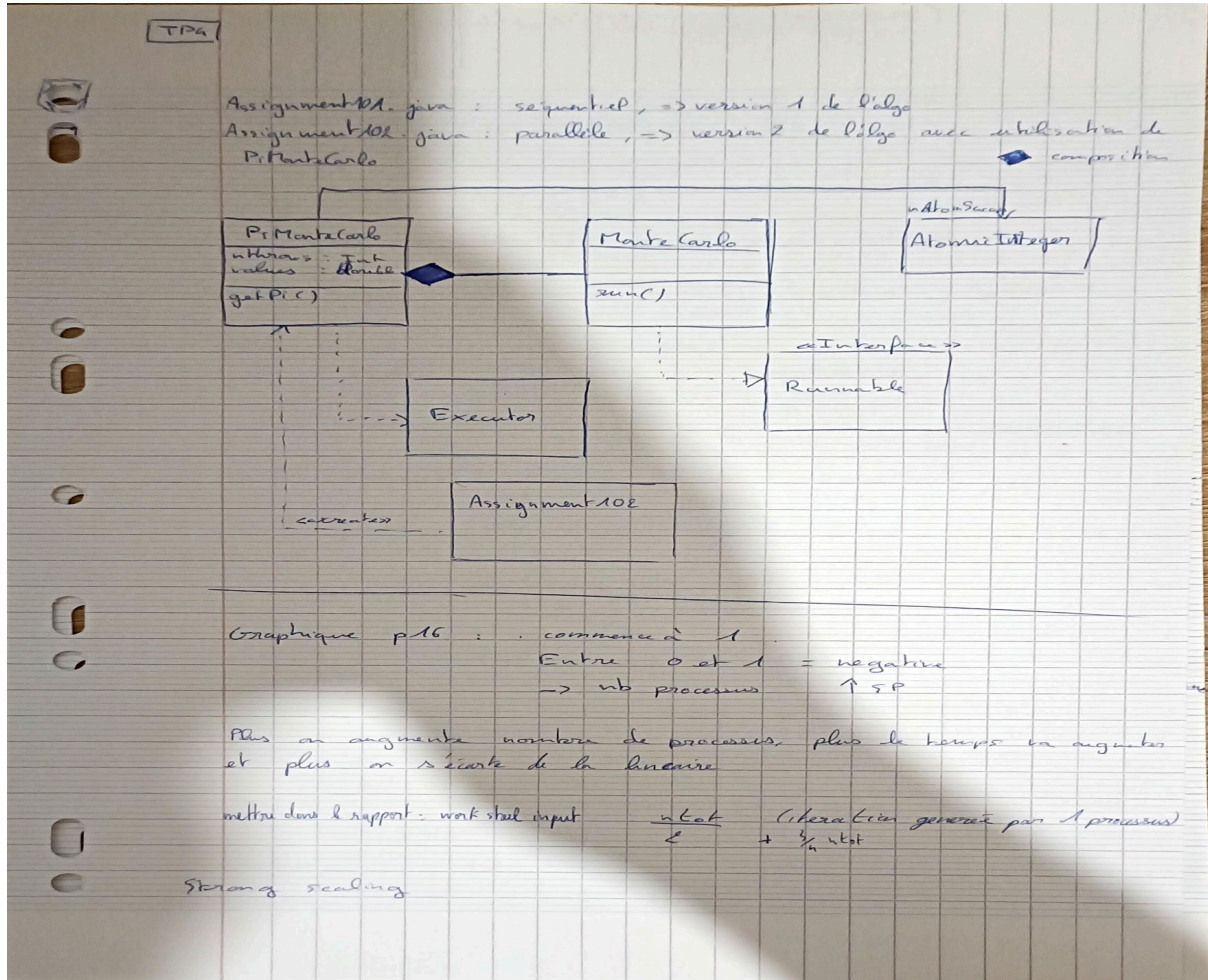 TP4
Assignment101.java : séquentiel, => version 1 de l'algo
Assignment102.java : parallèle, => version 2 de l'algo avec utilisation de
PiMonteCarlo
composition
PiMonteCarlo
nthrows : Int
values : double
getPi()
MonteCarlo
run()
AtomicInteger
<<Interface>>
Runnable
Executor
Assignment102
<<create>>
Graphique p16 : . commence à 1
Entre 0 et 1 = negative
-> nb processus ↑ SP
Plus on augmente nombre de processus, plus le temps va augmenter
et plus on s'écarte de la lineaire
mettre dans le rapport : work steal input
ntot
2
(iteration generée par 1 processus)
+ 3/4 ntot
Strong scaling